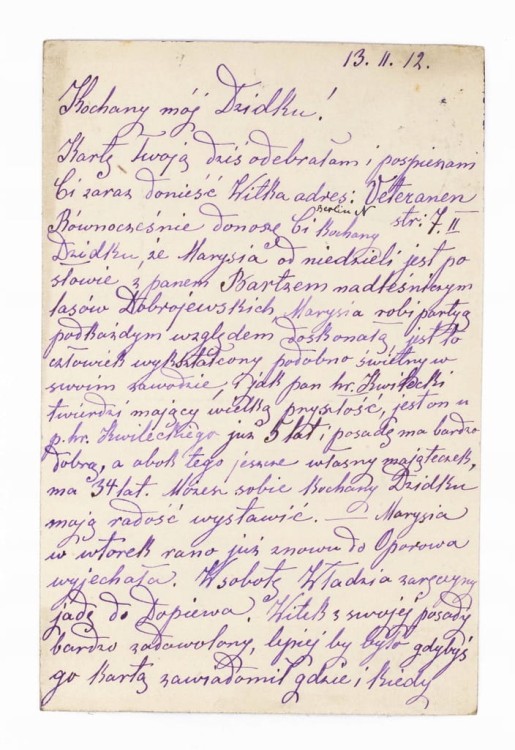 13. II. 12.
Kochany mój Dzidku!
Kartę Twoją dziś odebrałam i pospieszam
Ci zaraz donieść Witka adres: Veteranen
Berlin N str: 7. II
Równocześnie donoszę Ci Kochany
Dzidku, że Marysia od niedzieli jest po
słowie z panem nadleśniczym
lasów Dobrojewskich, Marysia robi partyą
podkażdym względem doskonałą, jest to
człowiek wykształcony podobno świetny w
swoim zawodzie, i jak pan hr. Kwilecki
twierdzi mający wielką przyszłość, jest on u
p. hr. Kwileckiego już 5 lat, posadę ma bardzo
dobrą, a obok tego jeszcze własny mająteczek,
ma 34 lat. Możesz sobie Kochany Dzidku
mają radość wystawić. — Marysia
w wtorek rano już znowu do Oporowa
wyjechała. W sobotę Władzia zaręczyny
jadę do Dopiewa. Witek z swojej posady
bardzo zadowolony, lepiej by było gdybyś
go Kartą zawiadomił gdzie i kiedy